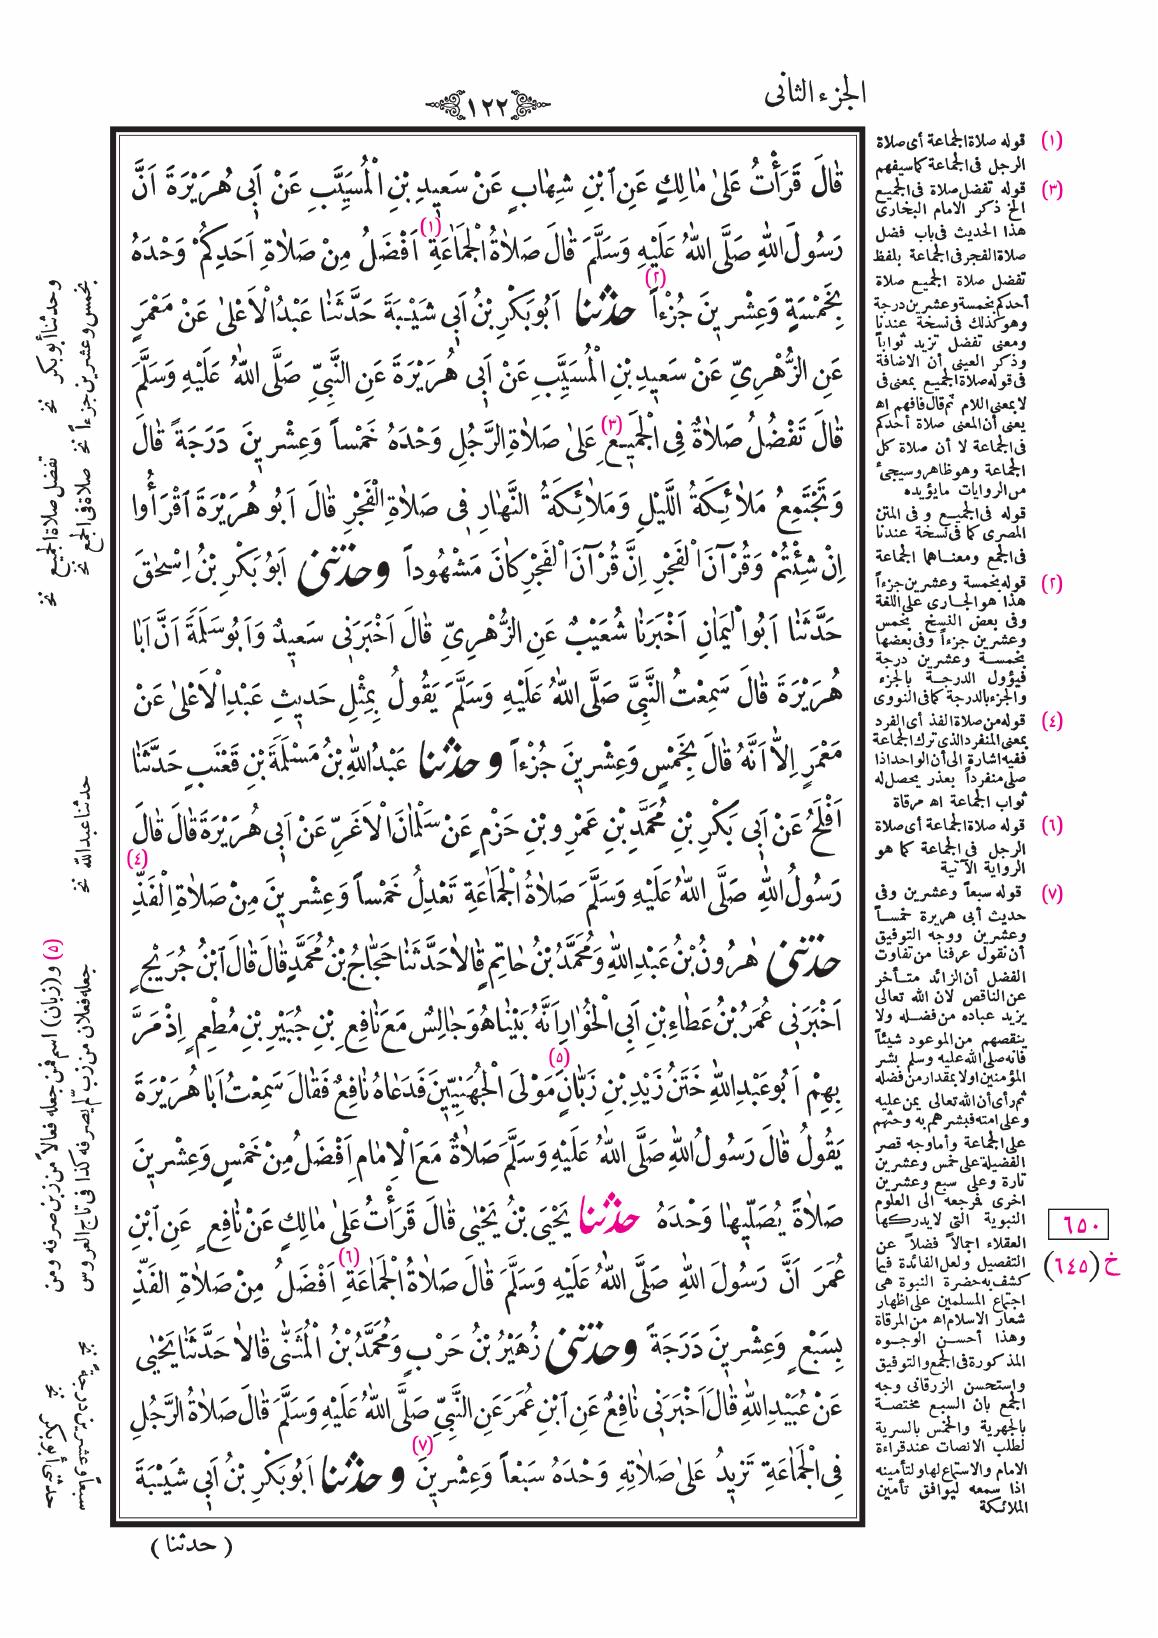 الجزء الثانى
١٢٢
قَالَ قَرَأْتُ عَلىٰ مَالِكٍ عَنِ ٱبْنِ شِهَابٍ عَنْ سَعِيدِ بْنِ الْمُسَيَّبِ عَنْ اَبِى هُرَيْرَةَ اَنَّ
رَسُولَ اللّٰهِ صَلَّى اللّٰهُ عَلَيْهِ وَسَلَّمَ قَالَ صَلاٰةُ الْجَمَاعَةِ (١) اَفْضَلُ مِنْ صَلاٰةِ اَحَدِكُمْ وَحْدَهُ
بِخَمْسَةٍ وَعِشْرِينَ جُزْءاً (٢) حدثنا اَبُوبَكْرِ بْنُ اَبِى شَيْبَةَ حَدَّثَنَا عَبْدُ الْاَعْلىٰ عَنْ مَعْمَرٍ
عَنِ الزُّهْرِىِّ عَنْ سَعِيدِ بْنِ الْمُسَيَّبِ عَنْ اَبِى هُرَيْرَةَ عَنِ النَّبِىِّ صَلَّى اللّٰهُ عَلَيْهِ وَسَلَّمَ
قَالَ تَفْضُلُ صَلاٰةٌ فِى الْجَمِيعِ (٣) عَلىٰ صَلاٰةِ الرَّجُلِ وَحْدَهُ خَمْساً وَعِشْرِينَ دَرَجَةً قَالَ
وَتَجْتَمِعُ مَلاٰئِكَةُ اللَّيْلِ وَمَلاٰئِكَةُ النَّهَارِ فِى صَلاٰةِ الْفَجْرِ قَالَ اَبُو هُرَيْرَةَ اَقْرَأُوا
اِنْ شِئْتُمْ وَقُرْآنَ الْفَجْرِ اِنَّ قُرْآنَ الْفَجْرِ كَانَ مَشْهُوداً وحدثنى اَبُو بَكْرِ بْنُ اِسْحٰقَ
حَدَّثَنَا اَبُو الْيَمَانِ اَخْبَرَنَا شُعَيْبٌ عَنِ الزُّهْرِىِّ قَالَ اَخْبَرَنِى سَعِيدٌ وَاَبُو سَلَمَةَ اَنَّ اَبَا
هُرَيْرَةَ قَالَ سَمِعْتُ النَّبِىَّ صَلَّى اللّٰهُ عَلَيْهِ وَسَلَّمَ يَقُولُ بِمِثْلِ حَدِيثِ عَبْدِ الْاَعْلىٰ عَنْ
مَعْمَرٍ اِلاَّ اَنَّهُ قَالَ بِخَمْسٍ وَعِشْرِينَ جُزْءاً و حدثنا عَبْدُ اللّٰهِ بْنُ مَسْلَمَةَ بْنِ قَعْنَبٍ حَدَّثَنَا
اَفْلَحُ عَنْ اَبِى بَكْرِ بْنِ مُحَمَّدِ بْنِ عَمْرِو بْنِ حَزْمٍ عَنْ سَلْمَانَ الْاَغَرِّ عَنْ اَبِى هُرَيْرَةَ قَالَ قَالَ
رَسُولُ اللّٰهِ صَلَّى اللّٰهُ عَلَيْهِ وَسَلَّمَ صَلاٰةُ الْجَمَاعَةِ تَعْدِلُ خَمْساً وَعِشْرِينَ مِنْ صَلاٰةِ الْفَذِّ (٤)
حدثنى هٰرُونُ بْنُ عَبْدِ اللّٰهِ وَمُحَمَّدُ بْنُ حَاتِمٍ قَالاَ حَدَّثَنَا حَجَّاجُ بْنُ مُحَمَّدٍ قَالَ قَالَ ٱبْنُ جُرَيْجٍ
اَخْبَرَنِى عُمَرُ بْنُ عَطَاءِ بْنِ اَبِى الْخُوَارِ اَنَّهُ بَيْنَا هُوَ جَالِسٌ مَعَ نَافِعِ بْنِ جُبَيْرِ بْنِ مُطْعِمٍ اِذْ مَرَّ
بِهِمْ اَبُو عَبْدِ اللّٰهِ خَتَنُ زَيْدِ بْنِ زَبَّانٍ (٥) مَوْلَى الْجُهَنِيِّينَ فَدَعَاهُ نَافِعٌ فَقَالَ سَمِعْتُ اَبَا هُرَيْرَةَ
يَقُولُ قَالَ رَسُولُ اللّٰهِ صَلَّى اللّٰهُ عَلَيْهِ وَسَلَّمَ صَلاٰةٌ مَعَ الْاِمَامِ اَفْضَلُ مِنْ خَمْسٍ وَعِشْرِينَ
صَلاٰةً يُصَلِّيهَا وَحْدَهُ حدثنا يَحْيَى بْنُ يَحْيٰى قَالَ قَرَأْتُ عَلىٰ مَالِكٍ عَنْ نَافِعٍ عَنِ ٱبْنِ
عُمَرَ اَنَّ رَسُولَ اللّٰهِ صَلَّى اللّٰهُ عَلَيْهِ وَسَلَّمَ قَالَ صَلاٰةُ الْجَمَاعَةِ (٦) اَفْضَلُ مِنْ صَلاٰةِ الْفَذِّ
بِسَبْعٍ وَعِشْرِينَ دَرَجَةً وحدثنى زُهَيْرُ بْنُ حَرْبٍ وَمُحَمَّدُ بْنُ الْمُثَنّٰى قَالاَ حَدَّثَنَا يَحْيٰى
عَنْ عُبَيْدِ اللّٰهِ قَالَ اَخْبَرَنِى نَافِعٌ عَنِ ٱبْنِ عُمَرَ عَنِ النَّبِىِّ صَلَّى اللّٰهُ عَلَيْهِ وَسَلَّمَ قَالَ صَلاٰةُ الرَّجُلِ
فِى الْجَمَاعَةِ تَزِيدُ عَلىٰ صَلاٰتِهِ وَحْدَهُ سَبْعاً وَعِشْرِينَ (٧) و حدثنا اَبُو بَكْرِ بْنُ اَبِى شَيْبَةَ
( حدثنا )
(١) قوله صلاة الجماعة أى صلاة
الرجل فى الجماعة كما سيفهم
(٣) قوله تفضل صلاة فى الجميع
الخ ذكر الامام البخارى
هذا الحديث فى باب فضل
صلاة الفجر فى الجماعة بلفظ
تفضل صلاة الجميع صلاة
أحدكم بخمسة وعشرين درجة
وهو كذلك فى نسخة عندنا
ومعنى تفضل تزيد ثواباً
وذكر العينى أن الاضافة
فى قوله صلاة الجميع بمعنى فى
لا بمعنى اللام ثم قال فافهم اه
يعنى أن المعنى صلاة أحدكم
فى الجماعة لا أن صلاة كل
الجماعة وهو ظاهر وسيجىء
من الروايات ما يؤيده
قوله فى الجميع و فى المتن
المصرى كما فى نسخة عندنا
فى الجمع ومعناهما الجماعة
(٢) قوله بخمسة وعشرين جزءاً
هذا هو الجارى على اللغة
وفى بعض النسخ بخمس
وعشرين جزءاً وفى بعضها
بخمسة وعشرين درجة
فيؤول الدرجة بالجزء
والجزء بالدرجة كما فى النووى
(٤) قوله من صلاة الفذ أى الفرد
بمعنى المنفرد الذى ترك الجماعة
ففيه اشارة الى أن الواحد اذا
صلى منفرداً بعذر يحصل له
ثواب الجماعة اه مرقاة
(٦) قوله صلاة الجماعة أى صلاة
الرجل فى الجماعة كما هو
الرواية الآتية
(٧) قوله سبعاً وعشرين وفى
حديث أبى هريرة خمساً
وعشرين ووجه التوفيق
أن نقول عرفنا من تفاوت
الفضل أن الزائد متأخر
عن الناقص لان الله تعالى
يزيد عباده من فضله ولا
ينقصهم من الموعود شيئاً
فانه صلى الله عليه وسلم بشر
المؤمنين اولا بمقدار من فضله
ثم رأى أن الله تعالى يمن عليه
وعلى امته فبشرهم به وحثهم
على الجماعة وأما وجه قصر
الفضيلة على خمس وعشرين
تارة وعلى سبع وعشرين
اخرى فمرجعه الى العلوم
النبوية التى لا يدركها
العقلاء اجمالاً فضلاً عن
التفصيل ولعل الفائدة فيما
كشف به حضرة النبوة هى
اجتماع المسلمين على اظهار
شعار الاسلام اه من المرقاة
وهذا أحسن الوجوه
المذكورة فى الجمع والتوفيق
واستحسن الزرقانى وجه
الجمع بان السبع مختصة
بالجهرية والخمس بالسرية
لطلب الانصات عند قراءة
الامام والاستماع لها ولتأمينه
اذا سمعه ليوافق تأمين
الملائكة
٦٥٠
خ (٦٤٥)
وحدثنا أبو بكر نخ تفضل صلاة الجميع نخ
بخمس وعشرين جزءاً نخ صلاة فى الجمع نخ
حدثنا عبد الله نخ
(٥) و (زبان) اسم فمن جعله فعالاً من زبن صرفه ومن
جعله فعلان من زبّ لم يصرفه كذا فى تاج العروس
سبعاً وعشرين درجة نخ
حدثنى أبو بكر نخ